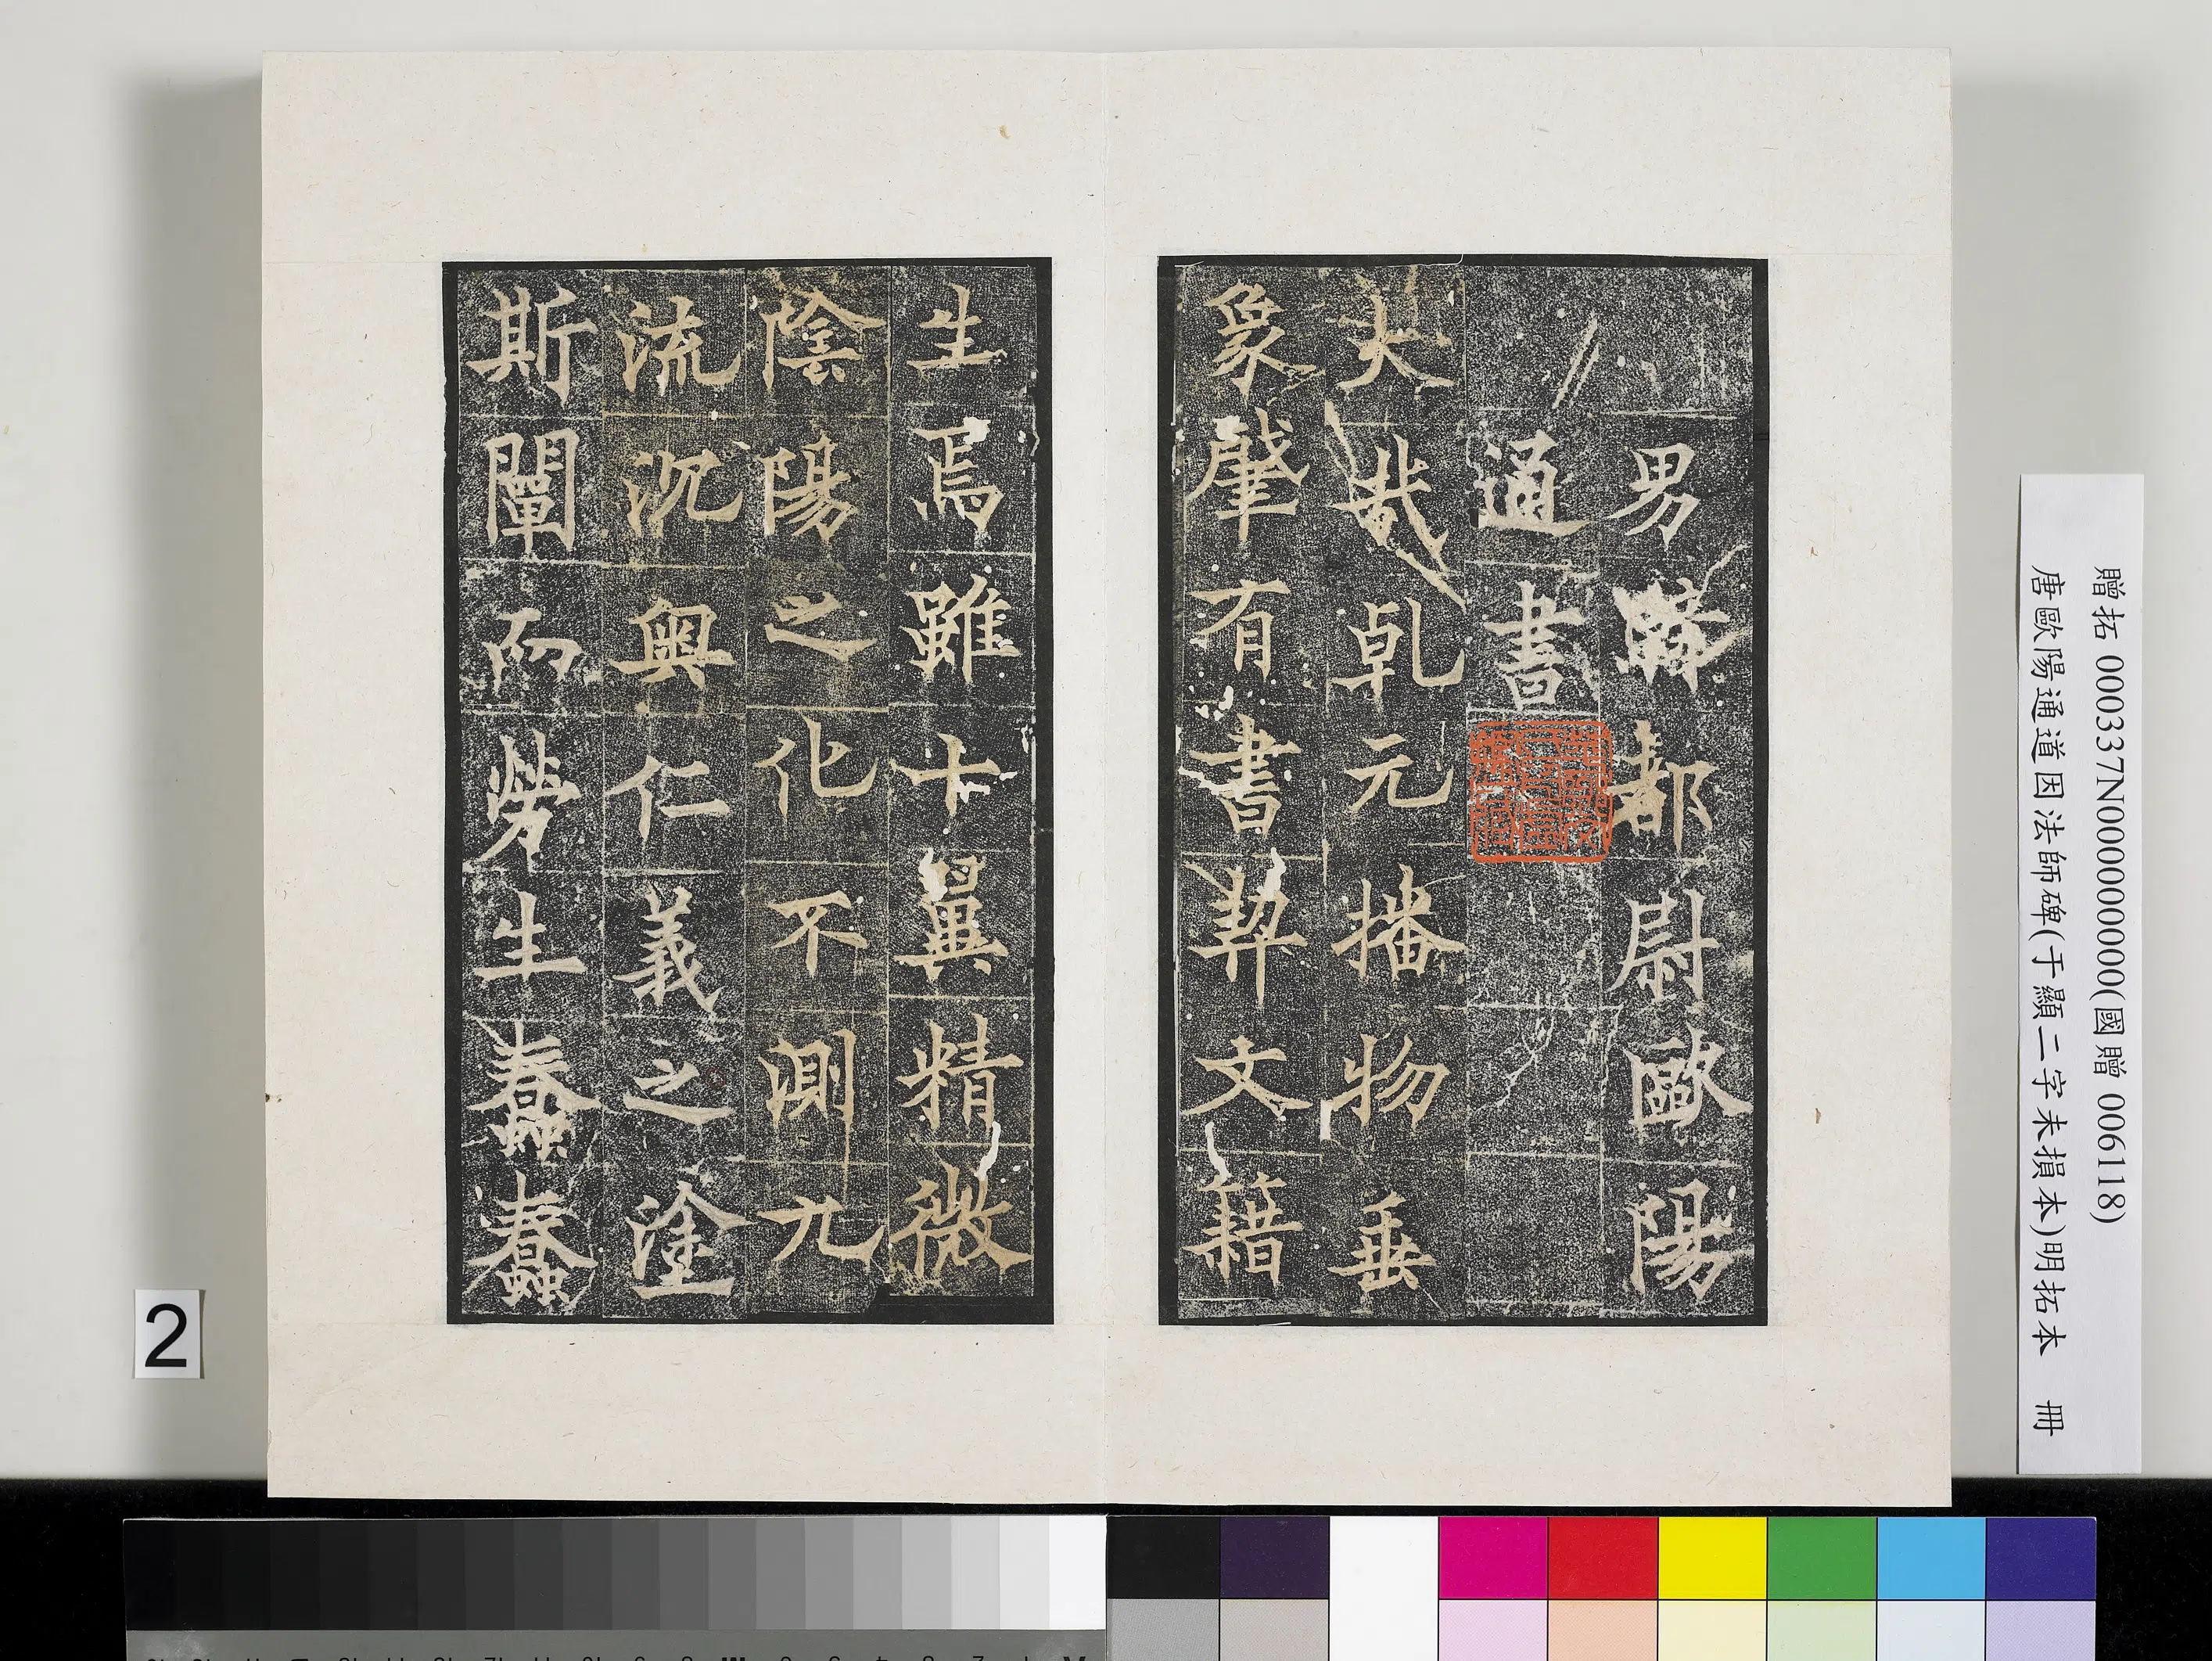 男騎都尉歐陽
通書
大哉乹元播物垂
象肇有書契文籍
生焉雖十翼精微
陰陽之化不測九
流沉奧仁義之塗
斯闡而勞生蠢蠢
贈拓 000337N000000000(國贈 006118)
唐歐陽通道因法師碑(于顯二字未損本)明拓本 冊
2